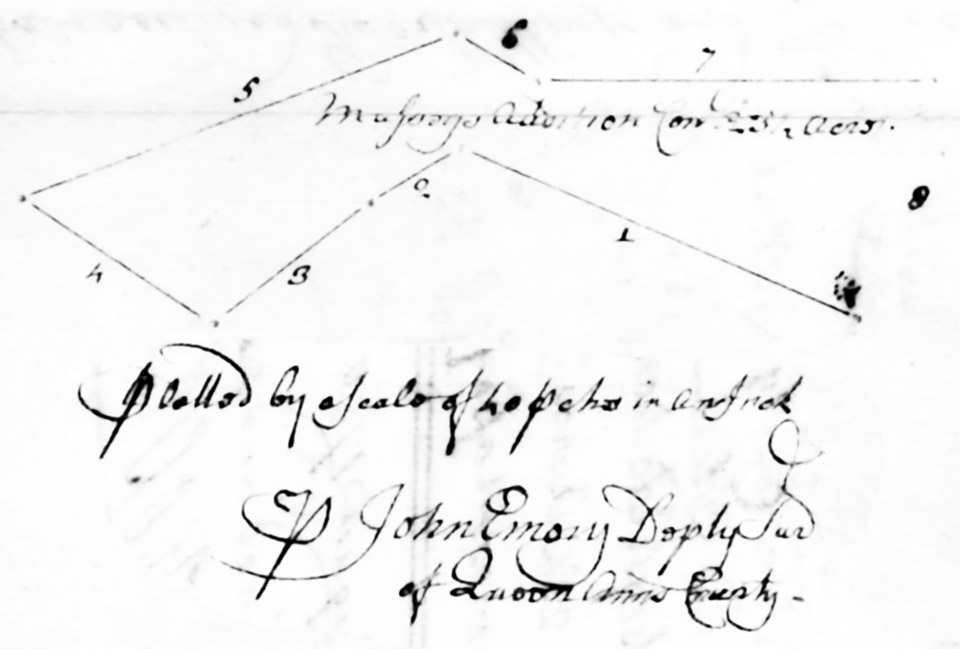 6
7
5
Addition Con: 235½ Acrs.
2
8
1
4
3
Platted by a Scale of 40 pchs in an Inch
P John Emory Depty Sur
of Queen Anns County -